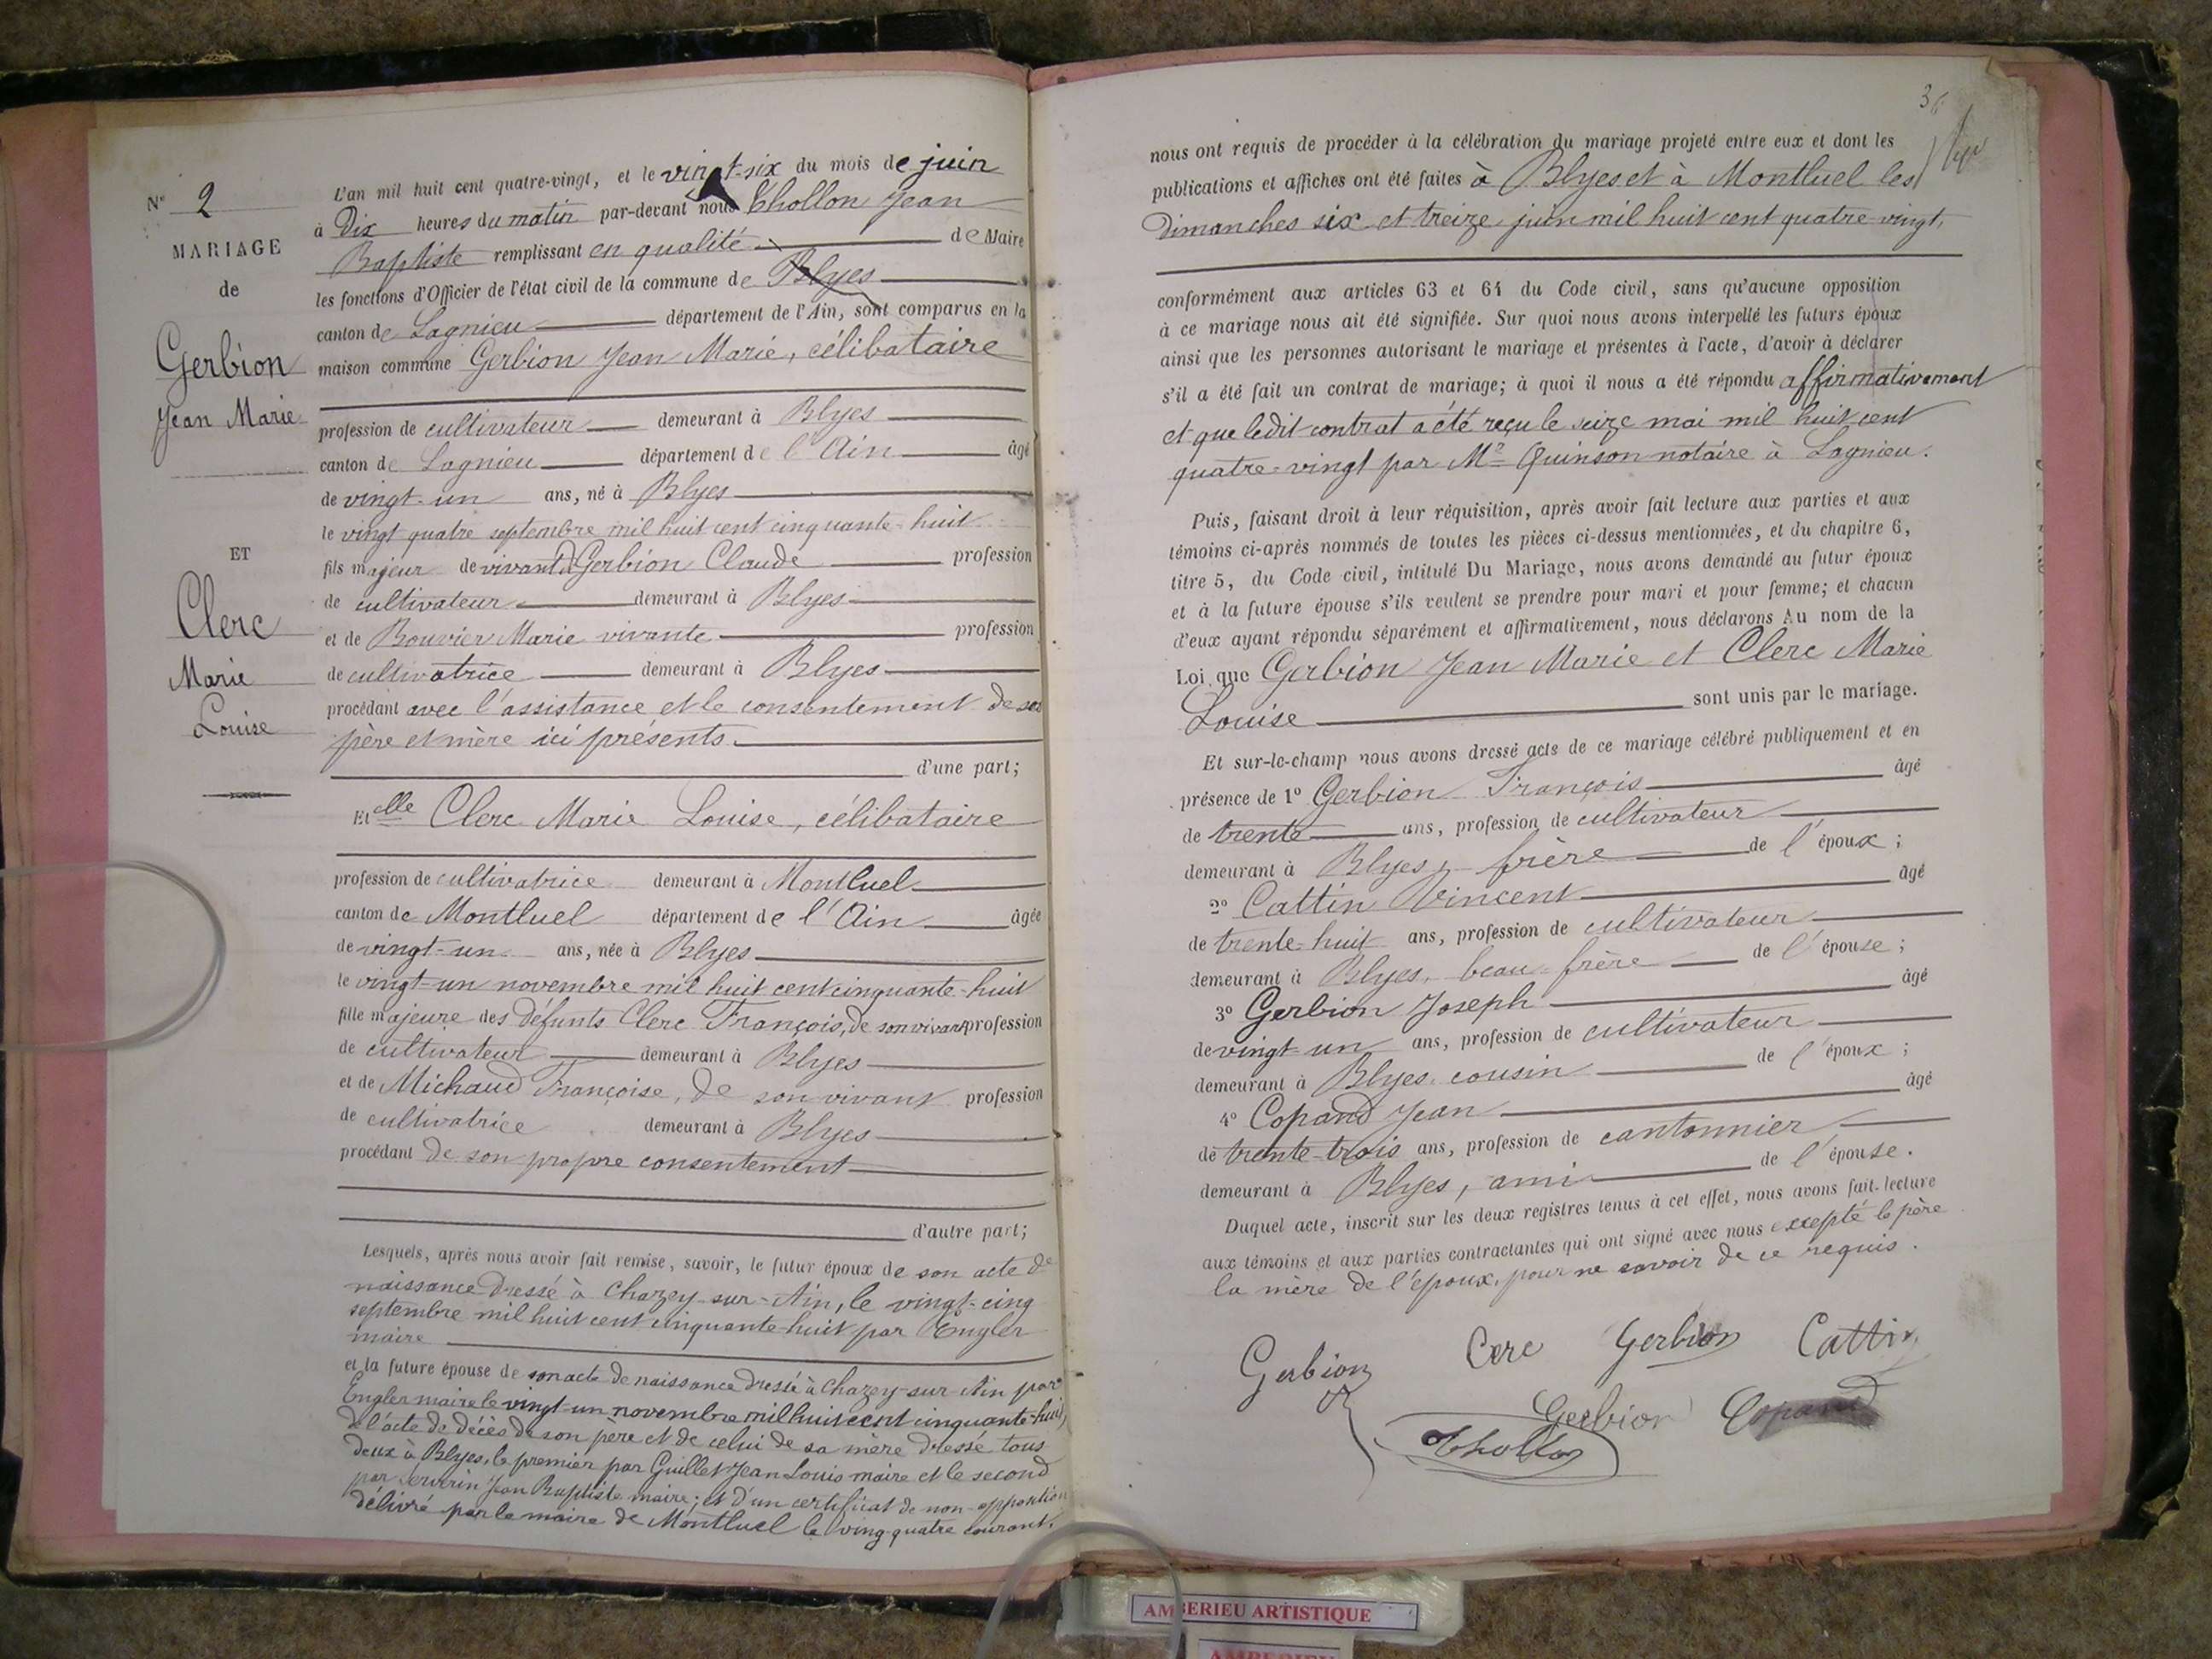 N° 2
MARIAGE
de
Gerbion
Jean Marie
ET
Clerc
Marie
Louise
L'an mil huit cent quatre-vingt, et le vingt-six du mois de juin
à Dix heures du matin par-devant nous Chollon Jean
Baptiste remplissant en qualité de Maire
les fonctions d'Officier de l'état civil de la commune de Blyes
canton de Lagnieu département de l'Ain, sont comparus en la
maison commune Gerbion Jean Marie, célibataire
profession de cultivateur demeurant à Blyes
canton de Lagnieu département de l'Ain âgé
de vingt-un ans, né à Blyes
le vingt quatre septembre mil huit cent cinquante-huit
fils majeur de vivant Gerbion Claude profession
de cultivateur demeurant à Blyes
et de Bouvier Marie vivante profession
de cultivatrice demeurant à Blyes
procédant avec l'assistance et le consentement de ses
père et mère ici présents.
d'une part;
Et elle Clerc Marie Louise, célibataire
profession de cultivatrice demeurant à Montluel
canton de Montluel département de l'Ain âgée
de vingt-un ans, née à Blyes
le vingt-un novembre mil huit cent cinquante-huit
fille majeure des défunts Clerc François, de son vivant profession
de cultivateur demeurant à Blyes
et de Michaud Françoise, de son vivant profession
de cultivatrice demeurant à Blyes
procédant de son propre consentement
d'autre part;
Lesquels, après nous avoir fait remise, savoir, le futur époux de son acte de
naissance dressé à Chazey-sur-Ain, le vingt-cinq
septembre mil huit cent cinquante-huit par Engler
maire
et la future épouse de son acte de naissance dressé à Chazey-sur-Ain par
Engler maire le vingt-un novembre mil huit cent cinquante-huit,
de l'acte de décès de son père et de celui de sa mère dressé tous
deux à Blyes, le premier par Guillet Jean Louis maire et le second
par Jean Baptiste maire; et d'un certificat de non-opposition
délivré par le maire de Montluel le ving-quatre courant.
36
nous ont requis de procéder à la célébration du mariage projeté entre eux et dont les
publications et affiches ont été faites à Blyes et à Montluel les
Dimanches six et treize juin mil huit cent quatre-vingt,
conformément aux articles 63 et 64 du Code civil, sans qu'aucune opposition
à ce mariage nous ait été signifiée. Sur quoi nous avons interpellé les futurs époux
ainsi que les personnes autorisant le mariage et présentes à l'acte, d'avoir à déclarer
s'il a été fait un contrat de mariage; à quoi il nous a été répondu affirmativement
et que ledit contrat a été reçu le seize mai mil huit cent
quatre-vingt par Me Quinson notaire à Lagnieu.
Puis, faisant droit à leur réquisition, après avoir fait lecture aux parties et aux
témoins ci-après nommés de toutes les pièces ci-dessus mentionnées, et du chapitre 6,
titre 5, du Code civil, intitulé Du Mariage, nous avons demandé au futur époux
et à la future épouse s'ils veulent se prendre pour mari et pour femme; et chacun
d'eux ayant répondu séparément et affirmativement, nous déclarons Au nom de la
Loi que Gerbion Jean Marie et Clerc Marie
Louise sont unis par le mariage.
Et sur-le-champ nous avons dressé acte de ce mariage célébré publiquement et en
présence de 1° Gerbion François âgé
de trente ans, profession de cultivateur
demeurant à Blyes, frère de l'époux;
2° Cattin Vincent âgé
de trente-huit ans, profession de cultivateur
demeurant à Blyes, beau-frère de l'épouse;
3° Gerbion Joseph âgé
de vingt-un ans, profession de cultivateur
demeurant à Blyes, cousin de l'époux;
4° Copand Jean âgé
de trente-trois ans, profession de cantonnier
demeurant à Blyes, ami de l'épouse.
Duquel acte, inscrit sur les deux registres tenus à cet effet, nous avons fait lecture
aux témoins et aux parties contractantes qui ont signé avec nous excepté le père
la mère de l'époux, pour ne savoir de ce requis.
Gerbion Cerc Gerbion Cattin
Gerbion Copand
Chollon
AMBERIEU ARTISTIQUE
AMBERIEU